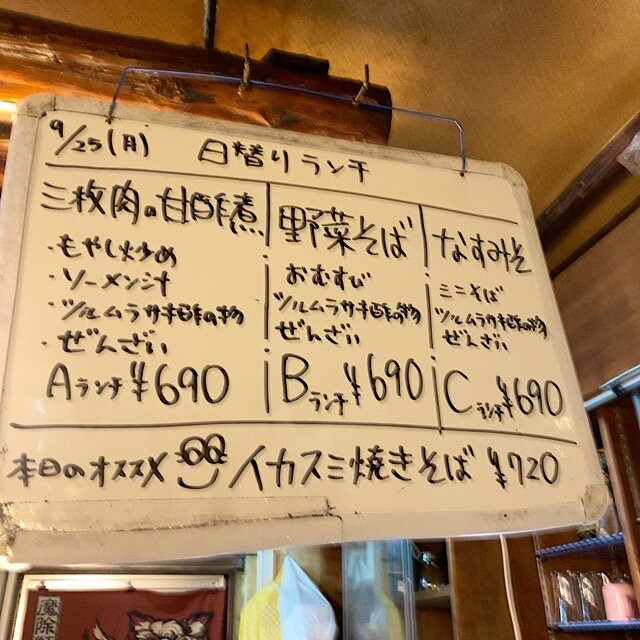 9/25(月) 日替りランチ
三枚肉の甘酢煮
・もやし炒め
・ソーメン汁
・ツルムラサキ酢の物
・ぜんざい
Aランチ ¥690
野菜そば
おむすび
ツルムラサキ酢の物
ぜんざい
Bランチ ¥690
なすみそ
ミニそば
ツルムラサキ酢の物
ぜんざい
Cランチ ¥690
本日のオススメ イカスミ焼きそば ¥720
魔除